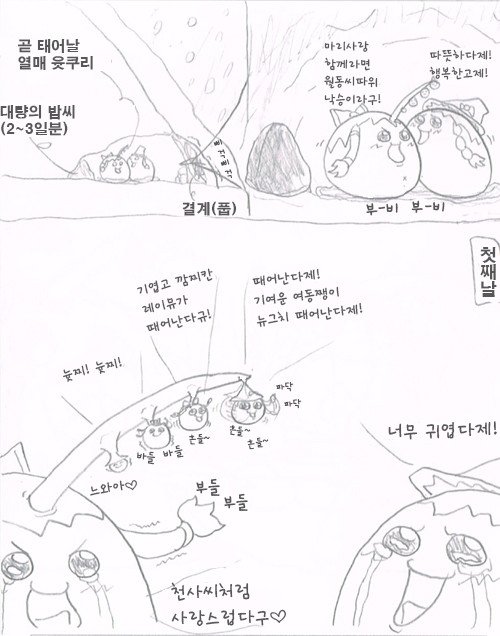 곧 태어날
열매 윳쿠리
대량의 밥씨
(2~3일분)
삐걱
삐걱
결계(품)
마리사랑
함께라면
월동씨따위
낙승이라구!
따뜻하다제!
행복한고제!
부-비 부-비
첫째날
기엽고 깜찌칸
레이뮤가
때어난다규!
때어난다제!
기여운 여동쨍이
뉴그치 때어난다제!
늊찌! 늊찌!
바들 바들
흔들~
흔들~
흔들~
파닥
파닥
너무 귀엽다제!
느와아♡
부들
부들
천사씨처럼
사랑스럽다구♡